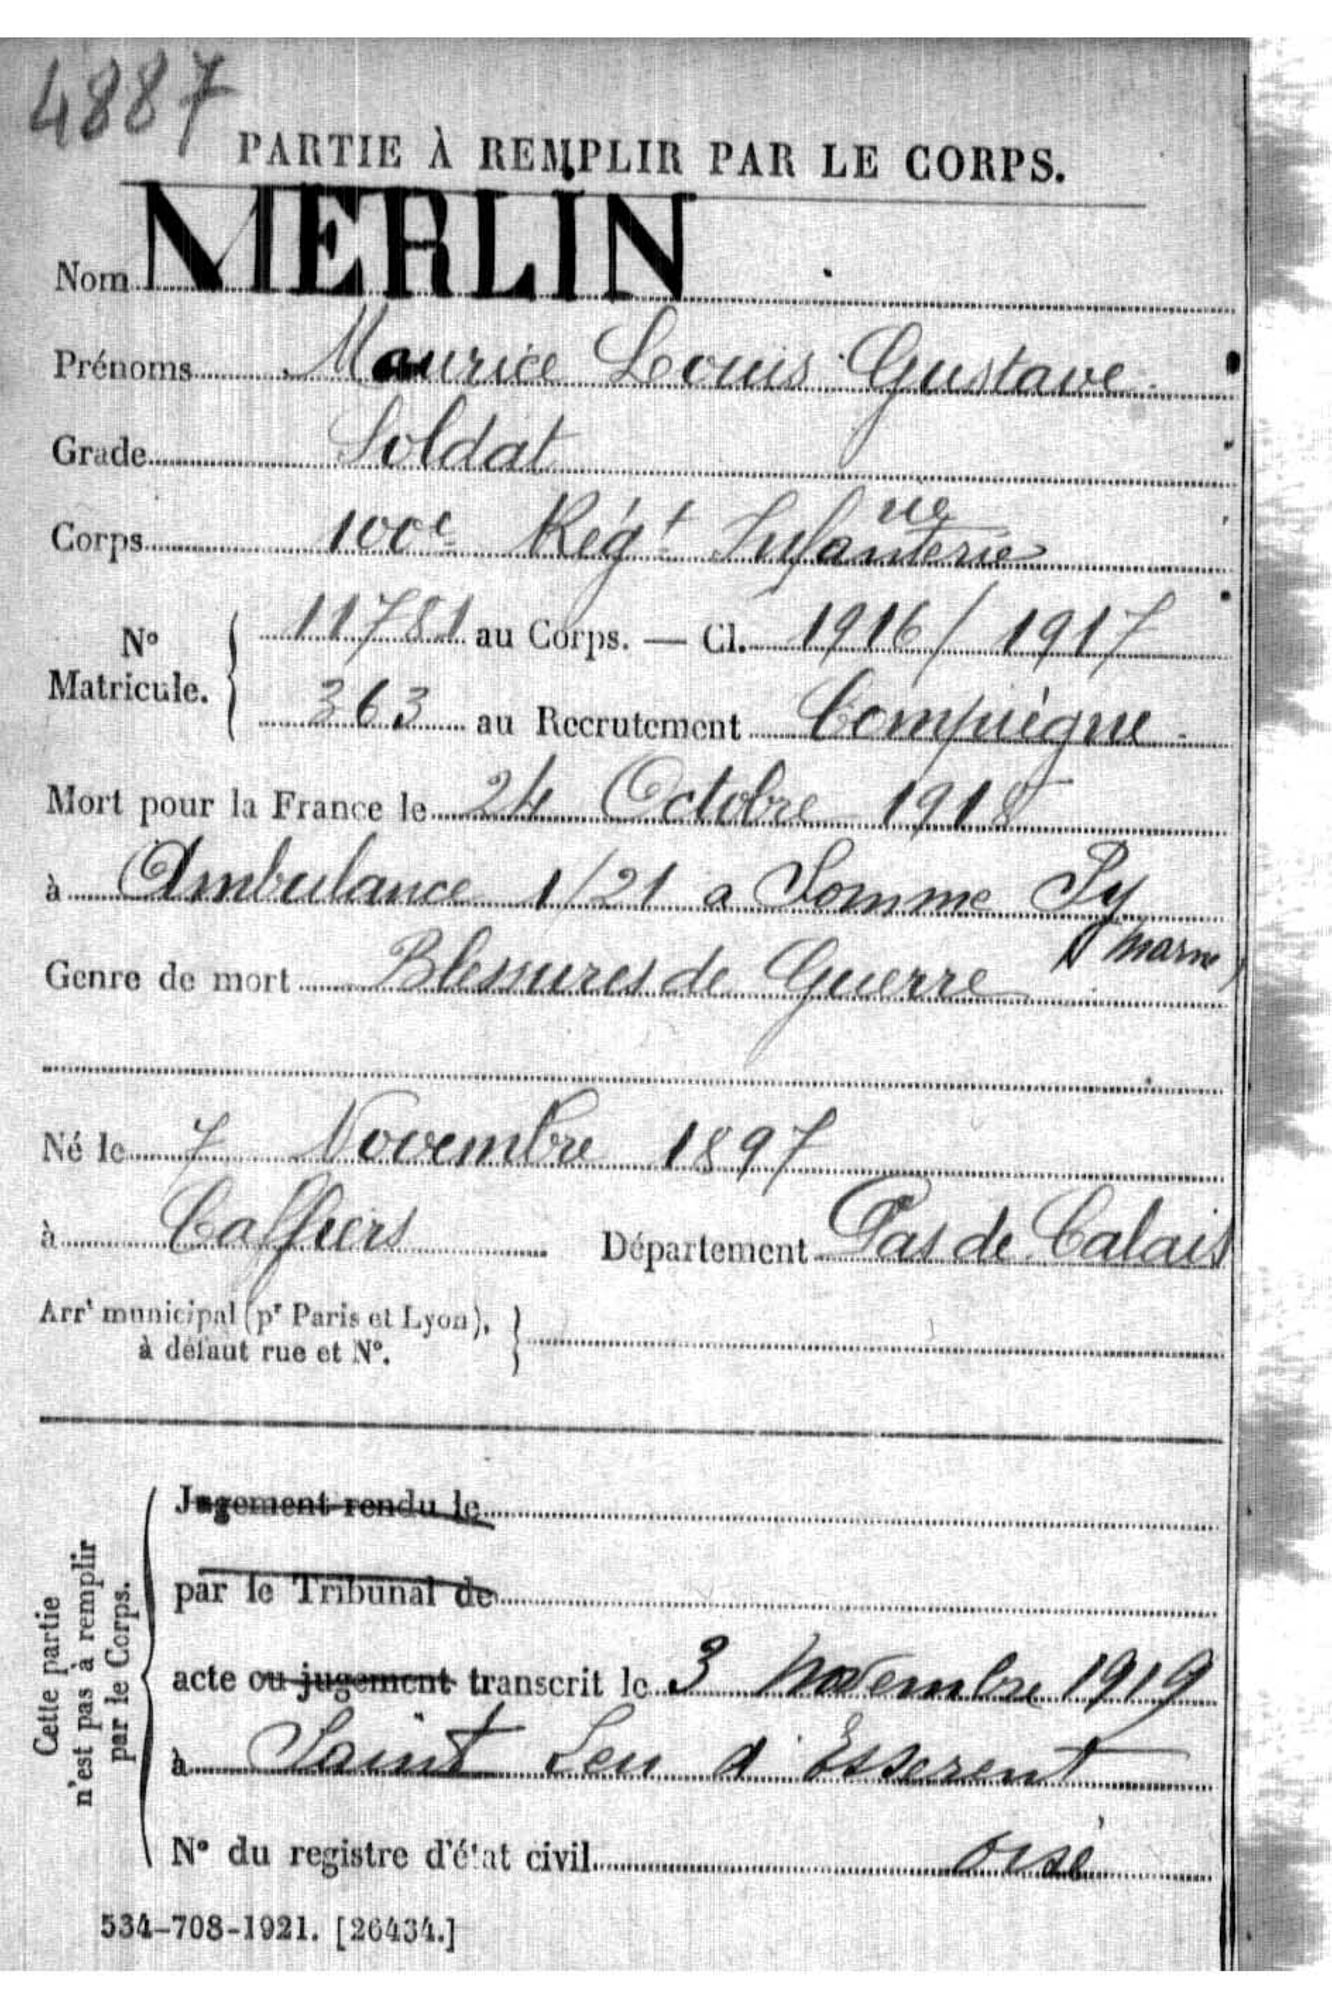 4887
PARTIE À REMPLIR PAR LE CORPS.
Nom MERLIN
Prénoms Maurice Louis Gustave
Grade Soldat
Corps 100e Régt Infanterie
N° Matricule. { 11781 au Corps. — Cl. 1916 / 1917
363 au Recrutement Compiègne
Mort pour la France le 24 Octobre 1918
à Ambulance 1/21 a Somme Py
(Marne)
Genre de mort Blessures de Guerre
Né le 7 Novembre 1897
à Caffiers Département Pas de Calais
Arrt municipal (pr Paris et Lyon),
à défaut rue et N°.
Cette partie
n'est pas à remplir
par le Corps.
Jugement rendu le
par le Tribunal de
acte ou jugement transcrit le 3 Novembre 1919
à Saint Leu d'Esserent
N° du registre d'état civil Oise
534-708-1921. [26434.]